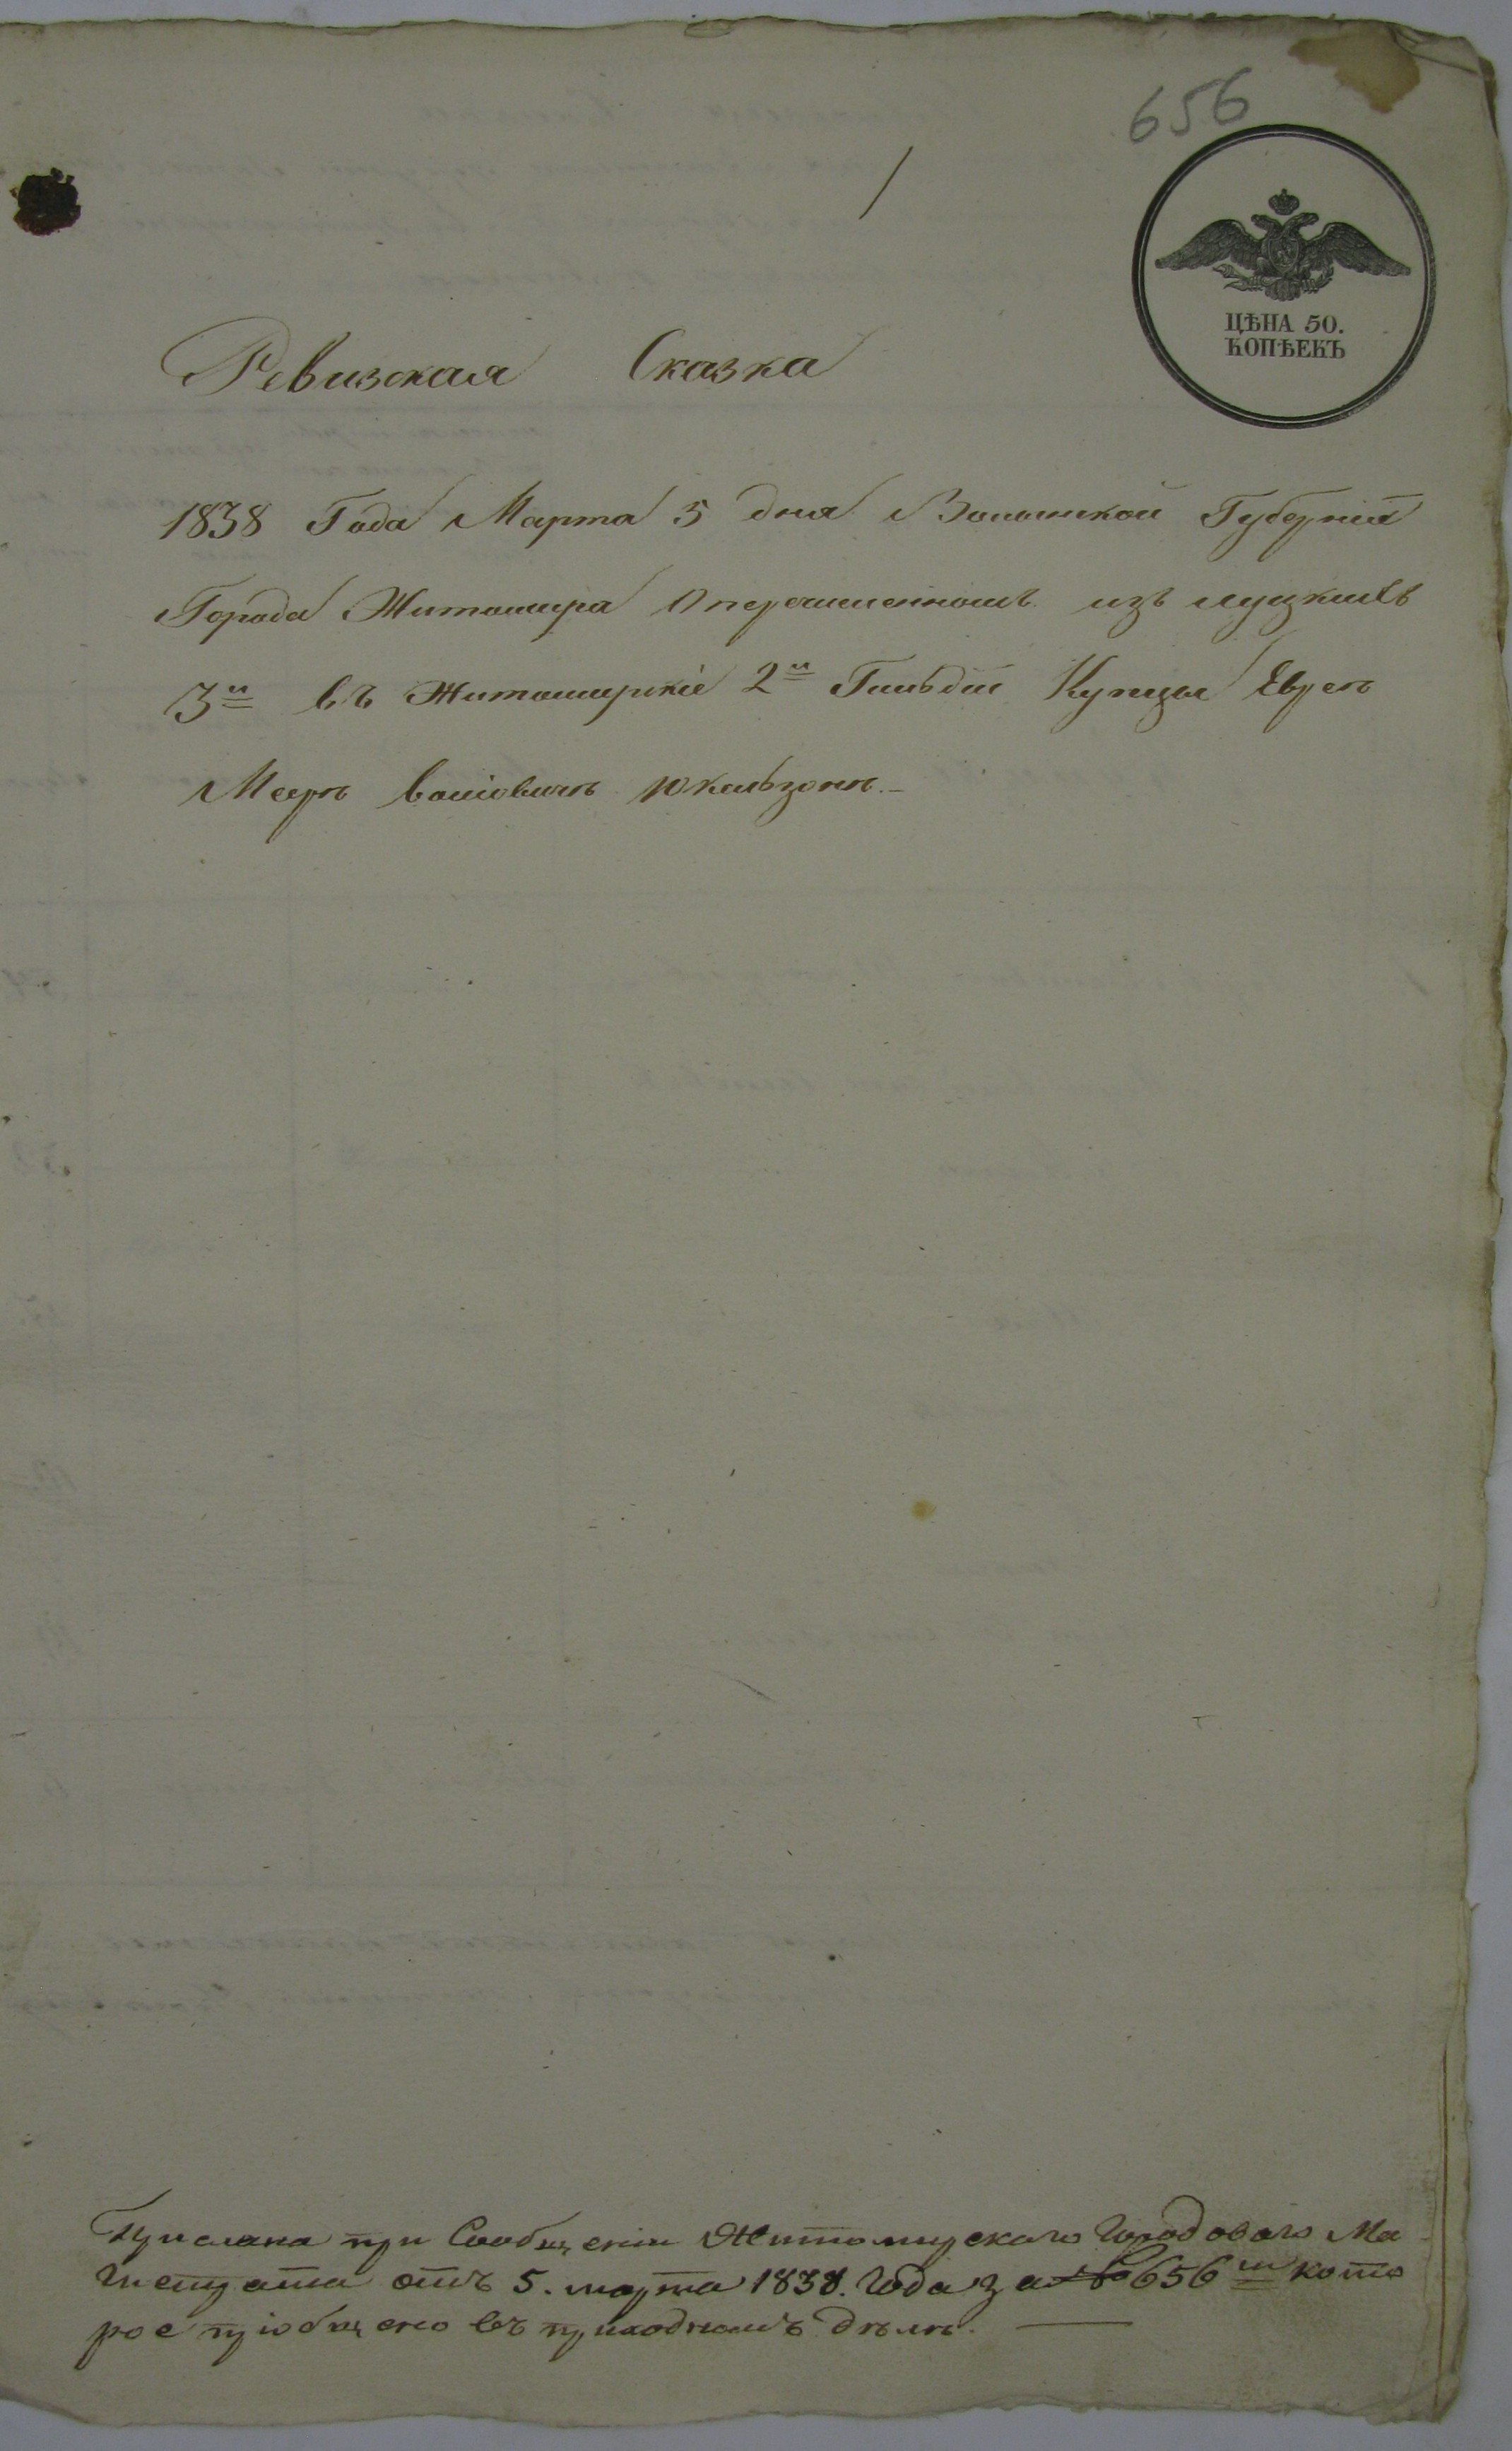 656
ЦѢНА 50.
КОПѢЕКЪ
Ревизская Сказка
1838 Года Марта 5 дня Волынской Губернїи
Города Житомира О перечисленномъ изъ луцкихъ
3й въ Житомирскїе 2й Гильдїи Купцы Евреѣ
Меерѣ
Прислана при Сообщенїи Житомирскаго Городоваго Ма
гистрата отъ 5. марта 1838. Года за № 656м кото
рое прїобщено въ приходномъ дѣлѣ.